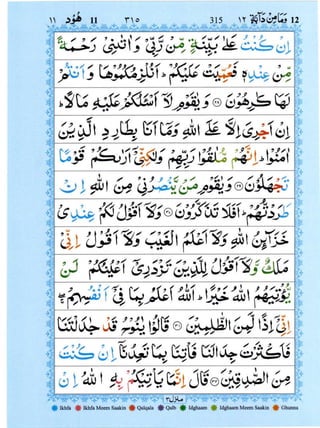 ١١ هُوْد 11 ٣١٥ 315 ١٢ وَمَا مِنْ دَآبَّةٍ 12
اِنْ كُنْتُ عَلٰى بَيِّنَةٍ مِّنْ رَّبِّىْ وَ اٰتٰىنِىْ رَحْمَةً
مِّنْ عِنْدِهٖ فَعُمِّيَتْ عَلَيْكُمْ ؕ اَنُلْزِمُكُمُوْهَا وَ اَنْتُمْ
لَهَا كٰرِهُوْنَ ﴿۲۸﴾ وَ يٰقَوْمِ لَاۤ اَسْـَٔلُكُمْ عَلَيْهِ مَالًا ؕ
اِنْ اَجْرِىَ اِلَّا عَلَى اللّٰهِ وَ مَاۤ اَنَا بِطَارِدِ الَّذِيْنَ
اٰمَنُوْا ؕ اِنَّهُمْ مُّلٰقُوْا رَبِّهِمْ وَ لٰكِنِّىْۤ اَرٰىكُمْ قَوْمًا
تَجْهَلُوْنَ ﴿۲۹﴾ وَ يٰقَوْمِ مَنْ يَّنْصُرُنِىْ مِنَ اللّٰهِ اِنْ
طَرَدْتُّهُمْ ؕ اَفَلَا تَذَكَّرُوْنَ ﴿۳۰﴾ وَ لَاۤ اَقُوْلُ لَكُمْ عِنْدِىْ
خَزَآئِنُ اللّٰهِ وَ لَاۤ اَعْلَمُ الْغَيْبَ وَ لَاۤ اَقُوْلُ اِنِّىْ
مَلَكٌ وَّ لَاۤ اَقُوْلُ لِلَّذِيْنَ تَزْدَرِىْۤ اَعْيُنُكُمْ لَنْ
يُّؤْتِيَهُمُ اللّٰهُ خَيْرًا ؕ اَللّٰهُ اَعْلَمُ بِمَا فِىْۤ اَنْفُسِهِمْ ۖۚ
اِنِّىْۤ اِذًا لَّمِنَ الظّٰلِمِيْنَ ﴿۳۱﴾ قَالُوْا يٰنُوْحُ قَدْ جٰدَلْتَنَا
فَاَكْثَرْتَ جِدَالَنَا فَاْتِنَا بِمَا تَعِدُنَاۤ اِنْ كُنْتَ
مِنَ الصّٰدِقِيْنَ ﴿۳۲﴾ قَالَ اِنَّمَا يَاْتِيْكُمْ بِهِ اللّٰهُ اِنْ
منزل ٣
Ikhfa Ikhfa Meem Saakin Qalqala Qalb Idghaam Idghaam Meem Saakin Ghunna